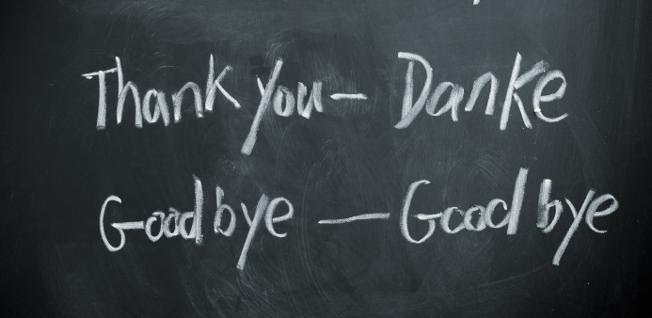 Thank you – Danke
Good bye — Good bye